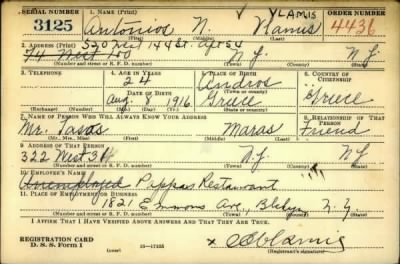 SERIAL NUMBER 1. NAME (Print) V YLAMIS ORDER NUMBER
3125 Antonios N. Vlamis 4436
(First) (Middle) (Last)
520 West 144 St. Apt 54
2. ADDRESS (Print)
74 West N.Y. N.Y.
(Number and street or R. F. D. number) (Town) (County) (State)
3. TELEPHONE 4. AGE IN YEARS 5. PLACE OF BIRTH 6. COUNTRY OF CITIZENSHIP
24 Andros
DATE OF BIRTH (Town or county)
Aug. 8 1916 Greece Greece
(Exchange) (Number) (Mo.) (Day) (Yr.) (State or country)
7. NAME OF PERSON WHO WILL ALWAYS KNOW YOUR ADDRESS 8. RELATIONSHIP OF THAT PERSON
Mr. Tasos Maras Friend
(Mr., Mrs., Miss) (First) (Middle) (Last)
9. ADDRESS OF THAT PERSON
322 West 31 N.Y. N.Y.
(Number and street or R. F. D. number) (Town) (County) (State)
10. EMPLOYER'S NAME
Unemployed Pappas Restaurant
11. PLACE OF EMPLOYMENT OR BUSINESS
1821 Emmons Ave., Bklyn N.Y.
(Number and street or R. F. D. number) (Town) (County) (State)
I AFFIRM THAT I HAVE VERIFIED ABOVE ANSWERS AND THAT THEY ARE TRUE.
REGISTRATION CARD
D. S. S. Form 1 16—17105 x
(Registrant's signature)